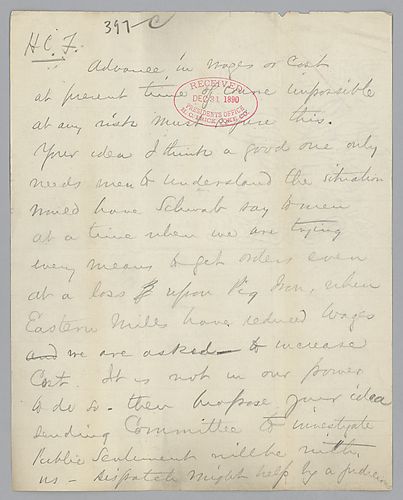 397-C
H.C.F.
Advance in wages or cost
at present time of course impossible
RECEIVED
DEC 31 1890
PRESIDENTS OFFICE
H. C. FRICK COKE CO.
at any risk must refuse this.
Your idea I think a good one only
needs men to understand the situation
would have Schwab say to men
at a time when we are trying
every means to get orders even
at a loss upon Pig Iron, when
Eastern Mills have reduced Wages
and we are asked to increase
Cost. It is not in our power
to do so - then propose your idea
sending Committee to investigate
Public Sentiment will be with
us - Dispatch might help by a